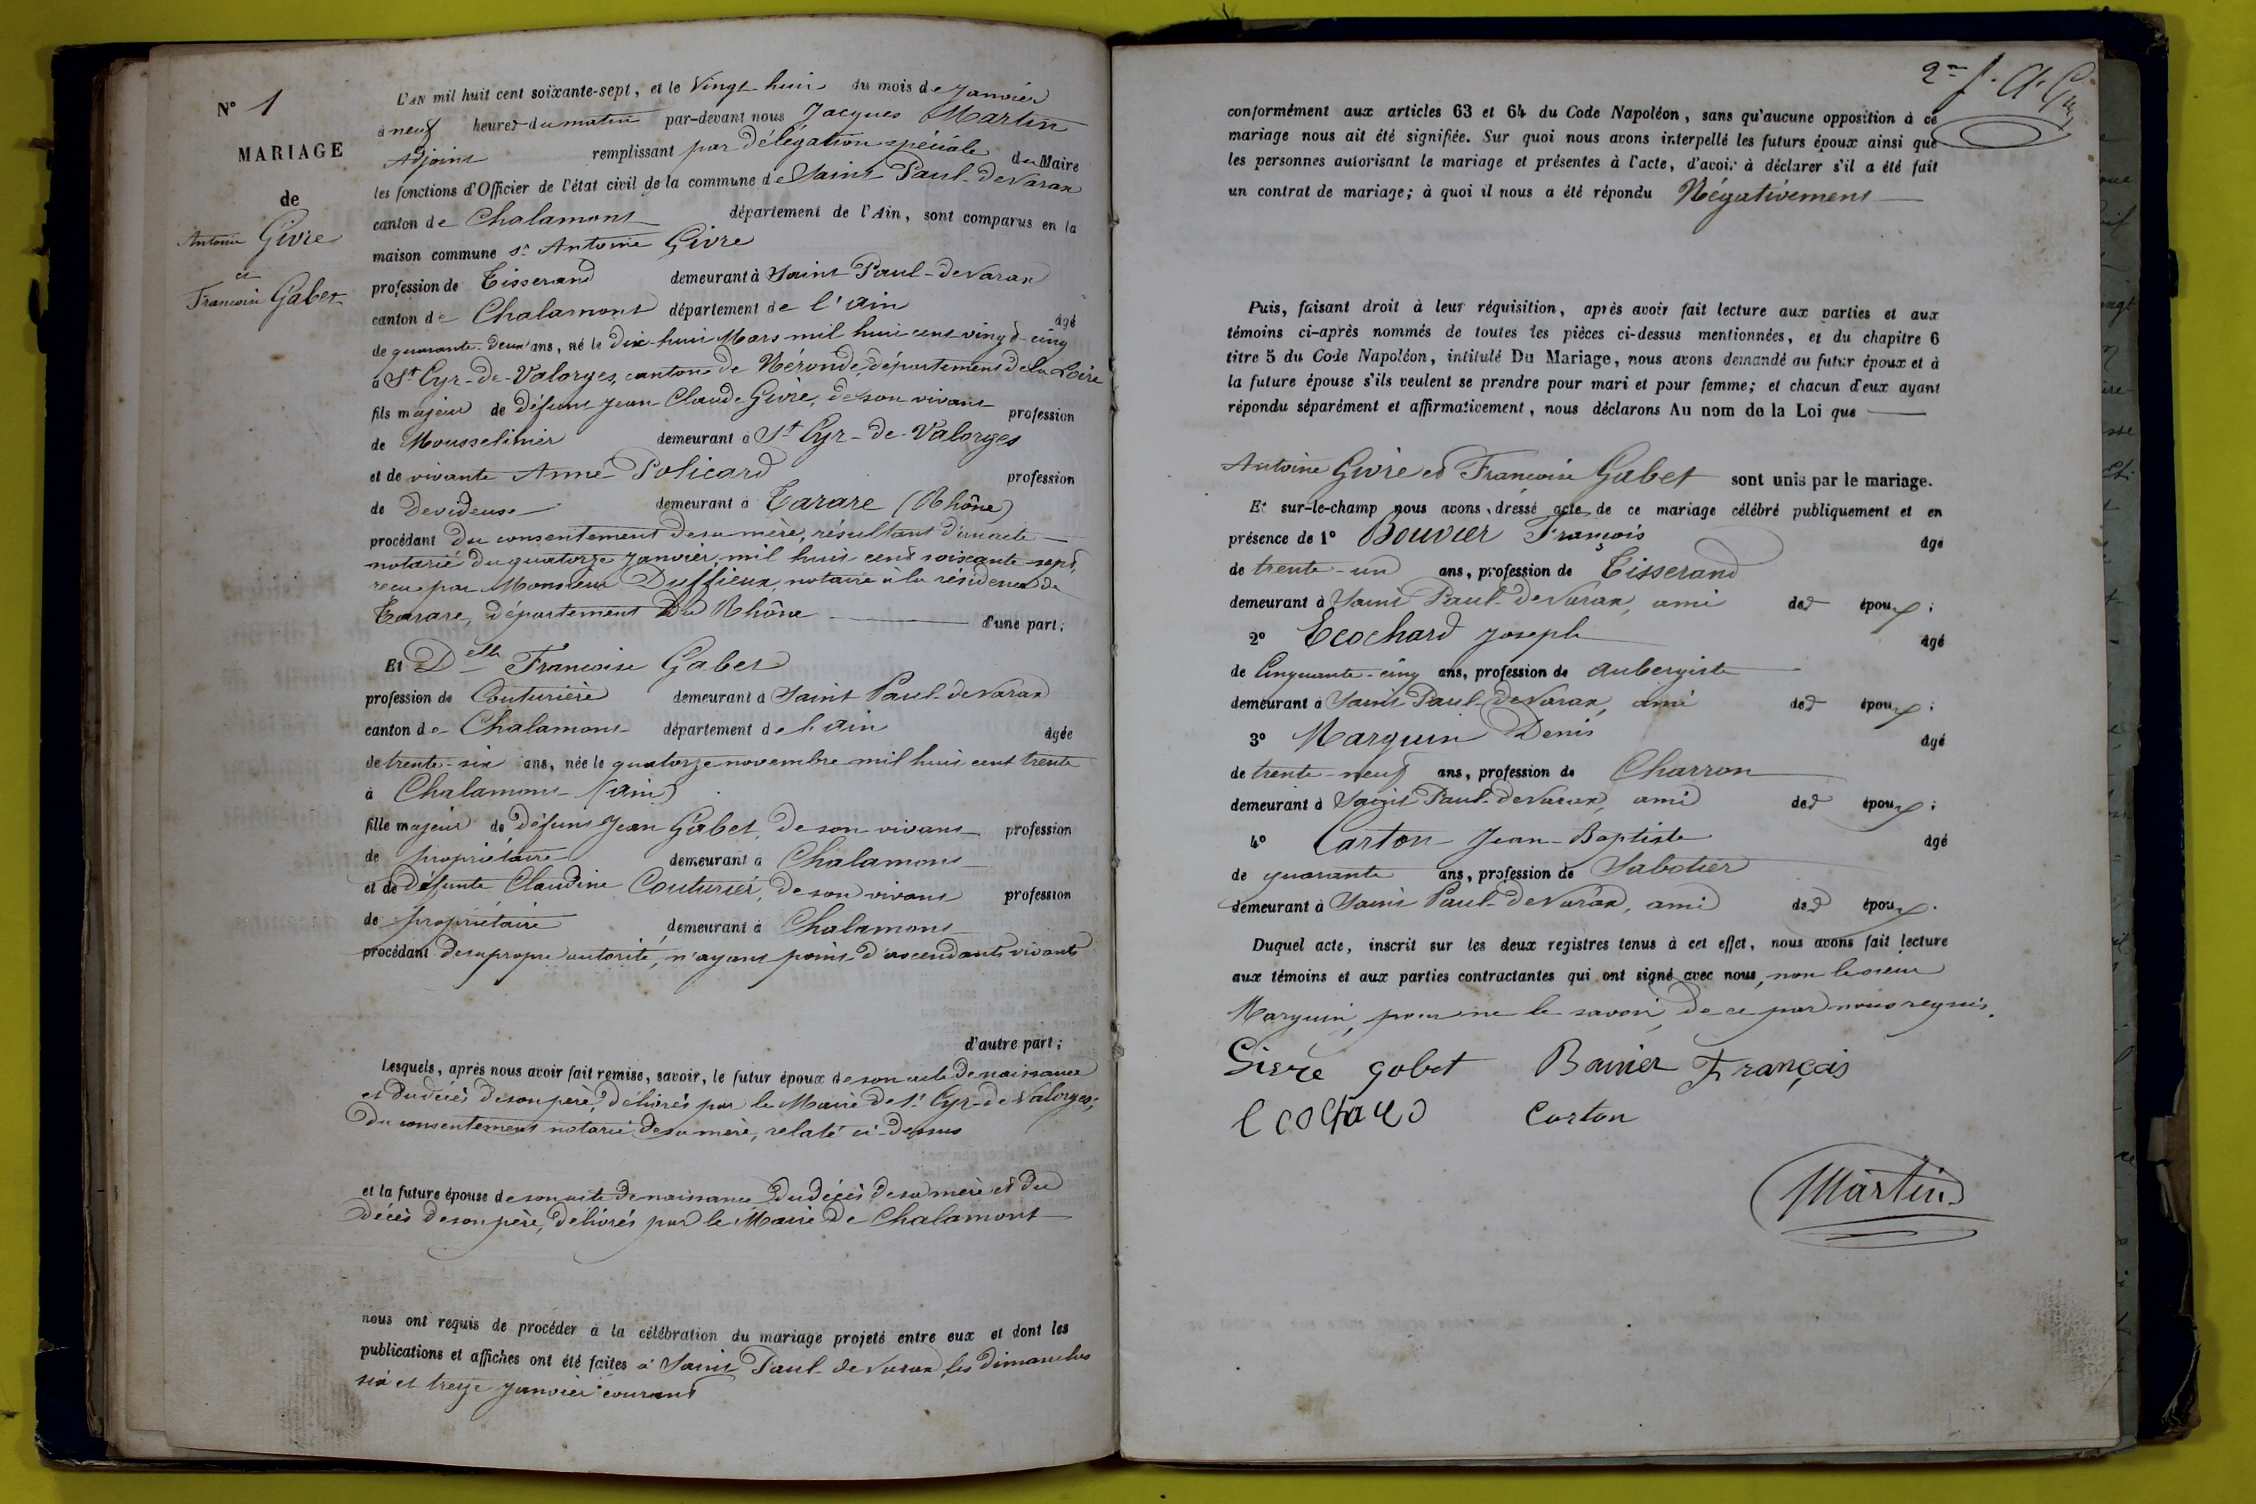 N° 1
MARIAGE
de
Antoine Givre
et
Francoise Gabet
L'AN mil huit cent soixante-sept, et le Vingt huit du mois de Janvier
à neuf heures du matin par-devant nous Jacques Martin
Adjoint remplissant par délégation spéciale du Maire
les fonctions d'Officier de l'état civil de la commune de Saint Paul-de Varax
canton de Chalamont département de l'Ain, sont comparus en la
maison commune sr Antoine Givre
profession de Tisserand demeurant à Saint Paul-de Varax
canton de Chalamont département de l'Ain âgé
de quarante-deux ans, né le dix-huit Mars mil huit cent vingt-cinq
à St Cyr-de-Valorges, canton de Néronde, département de la Loire
fils majeur de défunt Jean Claude Givre, de son vivant profession
de Mousselinier demeurant à St Cyr-de-Valorges
et de vivante Anne Policard profession
de Devideuse demeurant à Tarare (Rhône)
procédant du consentement de sa mère, résultant d'un acte
notarié du quatorze Janvier, mil huit cent soixante-sept,
recu par Monsieur Duffieux, notaire à la résidence de
Tarare, département du Rhône d'une part;
Et Delle Francoise Gabet
profession de Couturière demeurant à Saint Paul-de Varax
canton de Chalamont département de l'Ain âgée
de trente-six ans, née le quatorze novembre mil huit cent trente
à Chalamont (Ain)
fille majeur de défunt Jean Gabet, de son vivant profession
de propriétaire demeurant à Chalamont
et de défunte Claudine Couturier, de son vivant profession
de propriétaire demeurant à Chalamont
procédant de sa propre autorité, n'ayant point d'ascendants vivants
d'autre part;
Lesquels, après nous avoir fait remise, savoir, le futur époux de son acte de naissance
et du décès de son père, délivrés par le Maire de St Cyr-de Valorges;
du consentement notarié de sa mère, relaté ci-dessus
et la future épouse de son acte de naissance du décès de sa mère et du
décès de son père, délivrés par le Maire de Chalamont
nous ont requis de procéder à la célébration du mariage projeté entre eux et dont les
publications et affiches ont été faites à Saint Paul-de Varax, les dimanches
six et treize Janvier courant
2me f.
conformément aux articles 63 et 64 du Code Napoléon, sans qu'aucune opposition à ce
mariage nous ait été signifiée. Sur quoi nous avons interpellé les futurs époux ainsi que
les personnes autorisant le mariage et présentes à l'acte, d'avoir à déclarer s'il a été fait
un contrat de mariage; à quoi il nous a été répondu Négativement
Puis, faisant droit à leur réquisition, après avoir fait lecture aux parties et aux
témoins ci-après nommés de toutes les pièces ci-dessus mentionnées, et du chapitre 6
titre 5 du Code Napoléon, intitulé Du Mariage, nous avons demandé au futur époux et à
la future épouse s'ils veulent se prendre pour mari et pour femme; et chacun d'eux ayant
répondu séparément et affirmativement, nous déclarons Au nom de la Loi que
Antoine Givre et Francoise Gabet sont unis par le mariage.
Et sur-le-champ nous avons dressé acte de ce mariage célébré publiquement et en
présence de 1° Bouvier François âgé
de trente-un ans, profession de Tisserand
demeurant à Saint Paul-de Varax, ami des époux;
2° Ecochard Joseph âgé
de Cinquante-cinq ans, profession de aubergiste
demeurant à Saint Paul-de Varax, ami des époux;
3° Marguin Denis âgé
de trente-neuf ans, profession de Charron
demeurant à Saint Paul-de Varax, ami des époux;
4° Carton Jean-Baptiste âgé
de quarante ans, profession de Sabotier
demeurant à Saint Paul-de Varax, ami des époux.
Duquel acte, inscrit sur les deux registres tenus à cet effet, nous avons fait lecture
aux témoins et aux parties contractantes qui ont signé avec nous, non le sieur
Marguin, pour ne le savoir, de ce par nous requis.
Givre gobet Bouvier François
Ecochard Carton
Martin